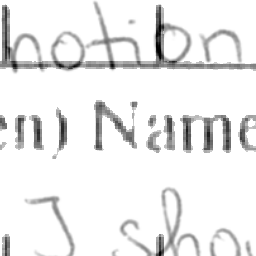 notion
en) Name
I shou